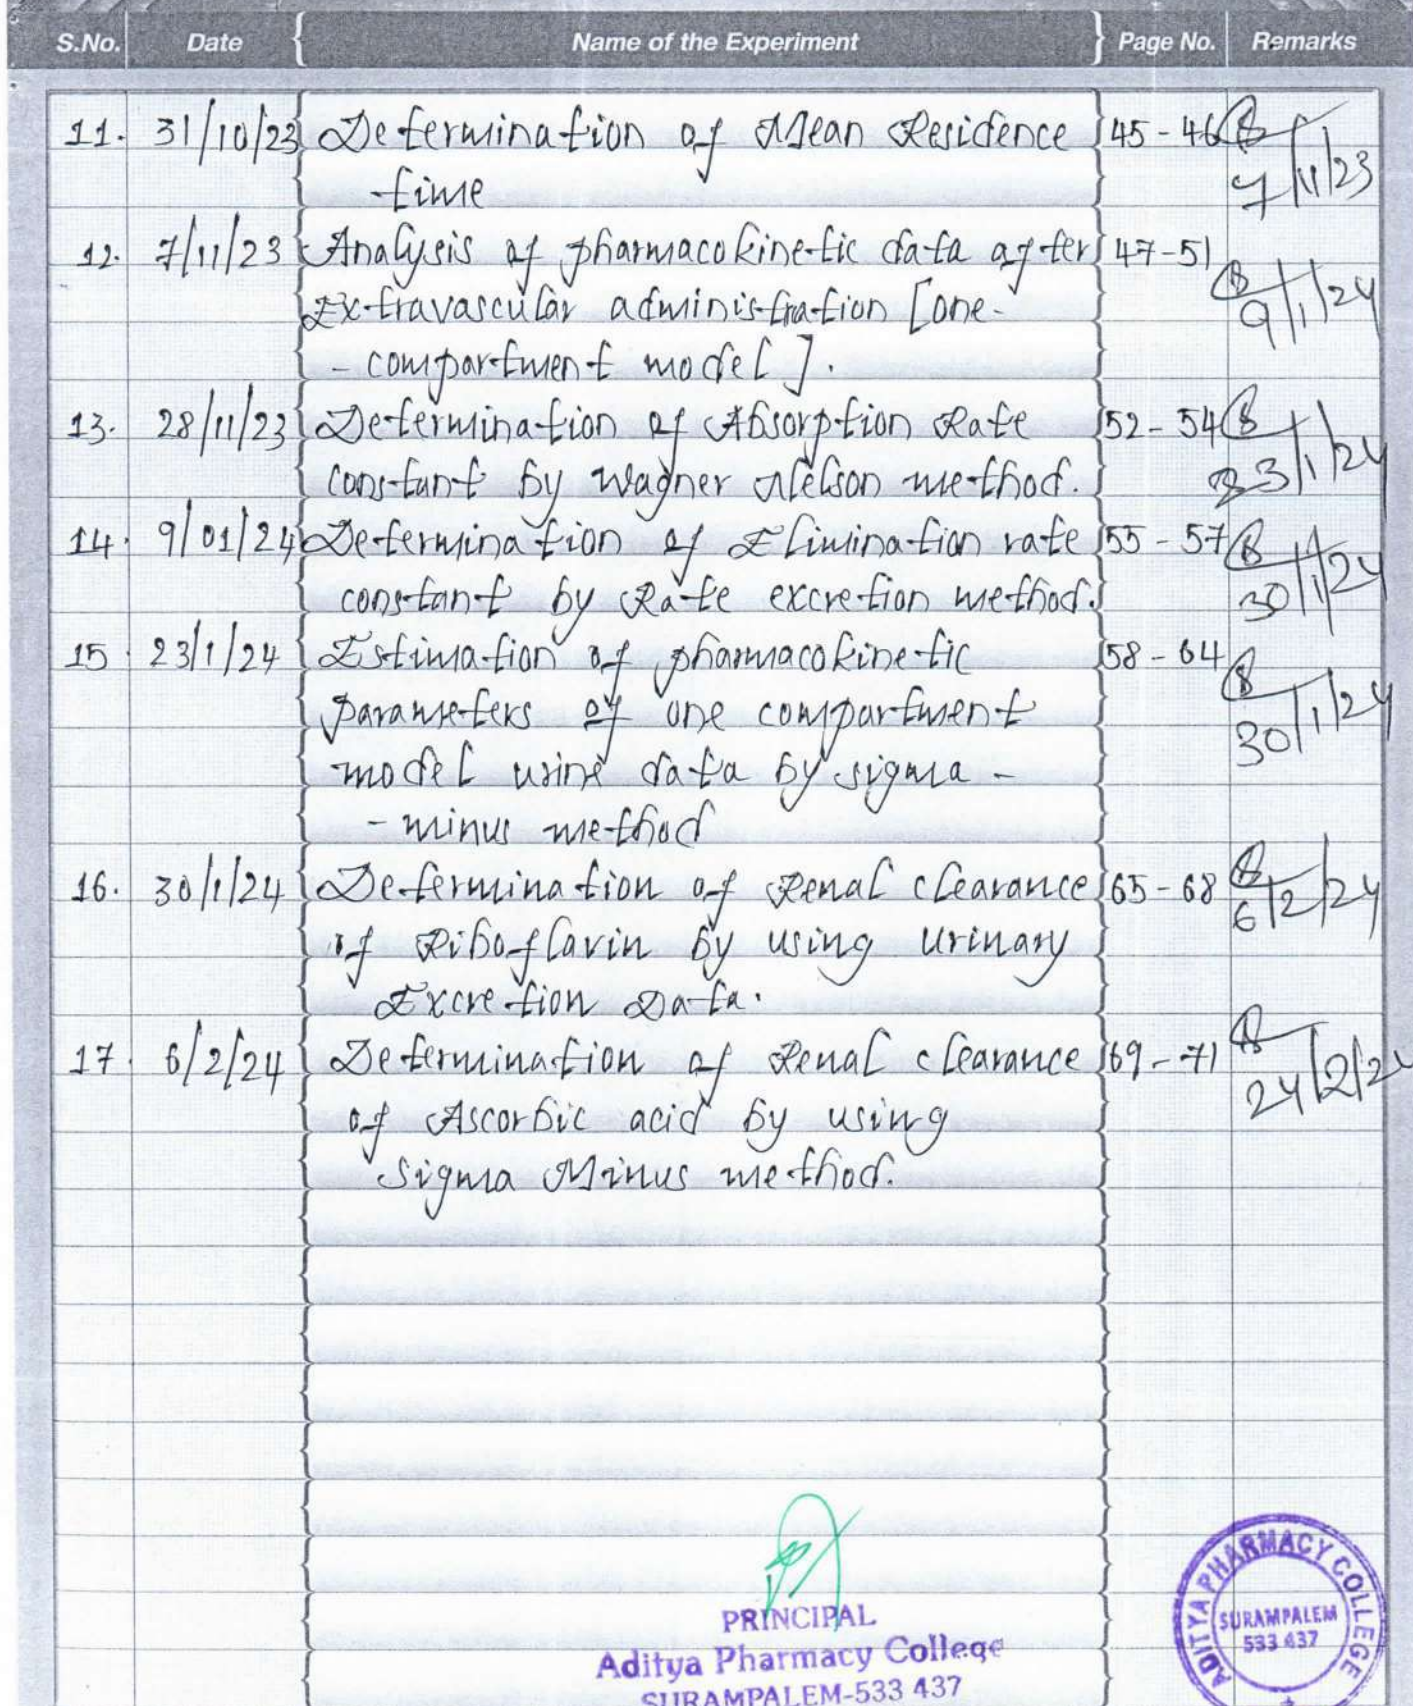 S.No. Date Name of the Experiment Page No. Remarks
11. 31/10/23 Determination of Mean Residence 45-46
time 7/11/23
12. 7/11/23 Analysis of pharmacokinetic data after 47-51
Extravascular administration [one- 9/1/24
- compartment model].
13. 28/11/23 Determination of Absorption Rate 52-54
constant by Wagner Nelson method. 23/1/24
14. 9/01/24 Determination of Elimination rate 55-57
constant by Rate excretion method. 30/1/24
15. 23/1/24 Estimation of pharmacokinetic 58-64
parameters of one compartment 30/1/24
model urine data by sigma -
- minus method
16. 30/1/24 Determination of Renal clearance 65-68 6/2/24
of Riboflavin by using urinary
Excretion Data.
17. 6/2/24 Determination of Renal clearance 69-71
of Ascorbic acid by using 24/2/24
Sigma Minus method.
PRINCIPAL
Aditya Pharmacy College
SURAMPALEM-533 437
ADITYA PHARMACY COLLEGE
SURAMPALEM
533 437